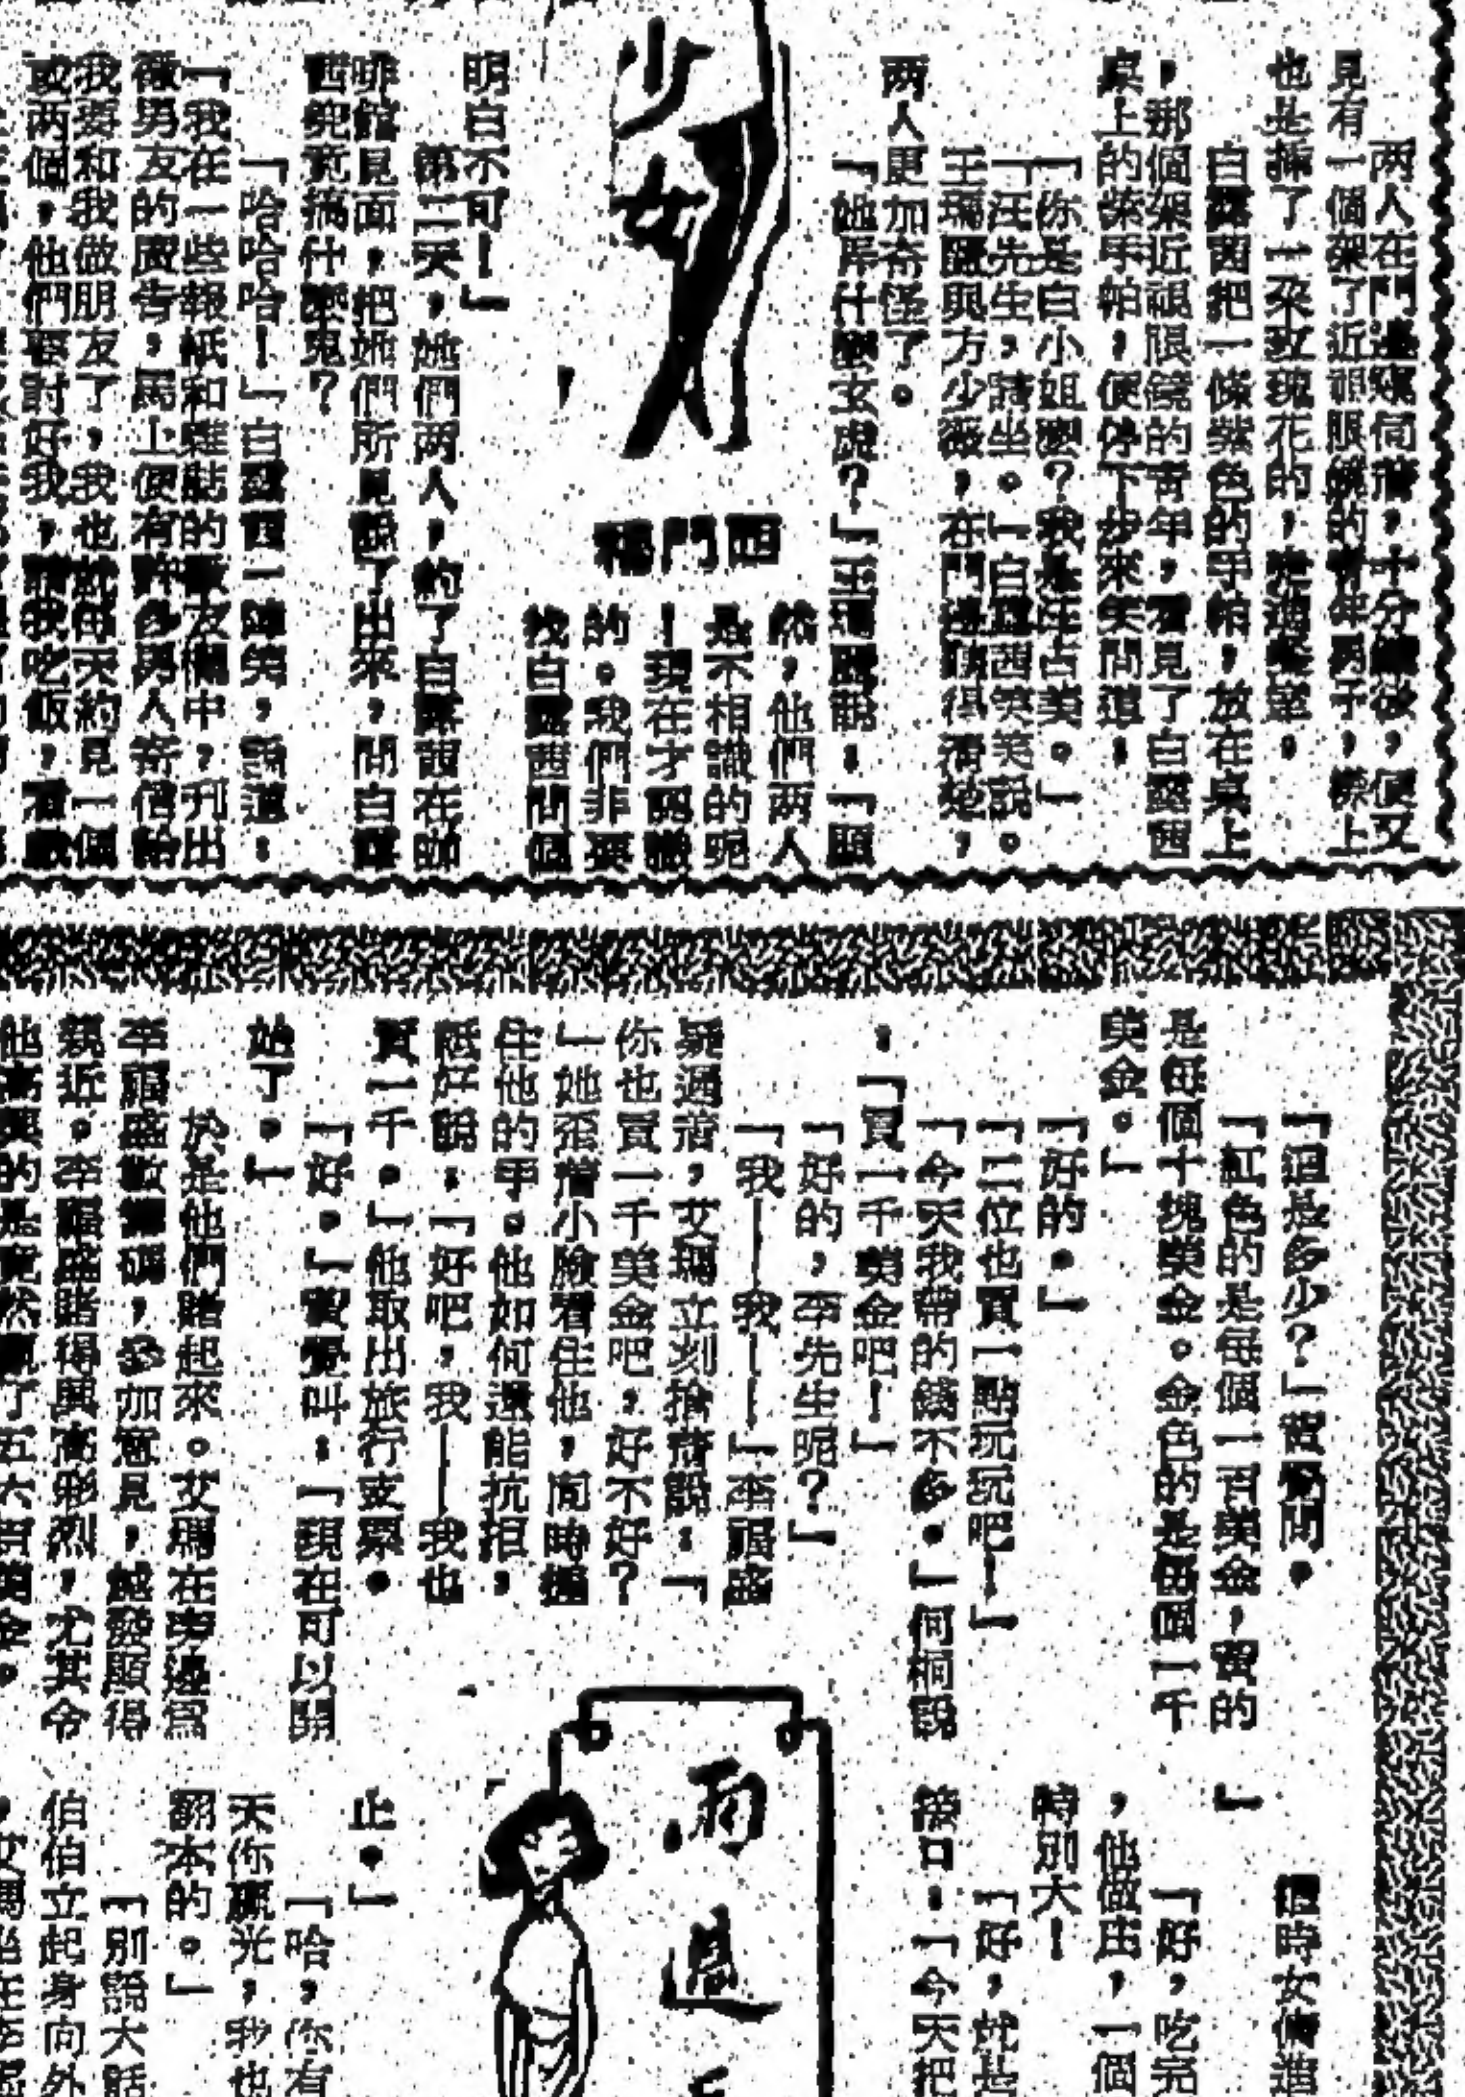 两人在門邊窺伺着,十分
見有一個架了近視眼鏡的青年男子,襟上
也是插了一朶玫瑰花的,走進來
白露茜把一條紫色的手帕,放在桌上
,那個架近視眼鏡的青年,看見了白露茜
桌上的紫手帕,便停下步來笑問道:
「你是白小姐麽?我是汪占美。」
「汪先生,請坐。」白露茜笑笑說。
王瑪麗與方少薇,在門邊聽得清楚,
两人更加奇怪了。
「她弄什麽玄虛?」王瑪麗說:「顯
然,他們两人
是不相識的呢
!現在才認識
的。我們非要
找白露茜問個
明白不可!」
少女
西門穆
第二天,她們两人,約了白露茜在咖
啡館見面,把她們所見說了出來,問白露
茜究竟搞什麽鬼?
「哈哈哈!」白露茜一陣笑,說道:
「我在一些報紙和雜誌的徵友欄中,刊出
徵男友的廣告,馬上便有許多男人寄信給
我要和我做朋友了,我也就每天約見一個
或两個,他們要討好我,請我吃飯,看戲
「這是多少?」賀覺問。
「紅色的是每個一百美金,賀的
是每個十塊美金。金色的是每個一千
美金。」
「好的。」
「二位也買一點玩玩吧!」
「今天我帶的錢不多。」何桐說
:「買一千美金吧!」
「好的,李先生呢?」
「我——我——」李福盛
疑遲着,艾瑪立刻搶着說:「
你也買一千美金吧,好不好?
」她歪着小臉看住他,同時握
住他的手。他如何還能抗拒,
祗好說:「好吧,我——我也
買一千。」他取出旅行支票。
「好。」賀覺叫:「現在可以開
始了。」
於是他們賭起來。艾瑪在旁邊爲
李福盛數籌碼,參加意見,越發顯得
親近。李福盛賭得興高彩烈,尤其令
他高興的是竟然贏了五六百美金。
這時女傭進
」
「好,吃完
,他做庄,一個
特別大!
「好,就是
接口:「今天把
雨過
止。」
「哈,你有
天你贏光,我也
翻本的。」
「別說大話
伯伯立起身向外